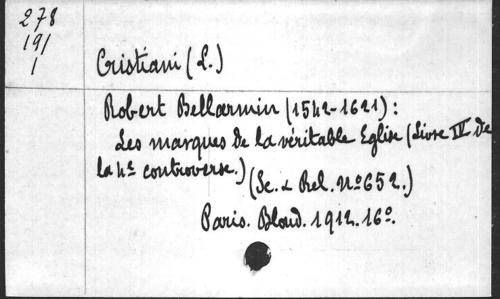 278
191
1
Cristiani (L.)
Robert Bellarmin (1542-1621):
Les marques de la véritable Eglise (Livre IV de
la 4e controverse.)
(Sc. & Rel. No 652.)
Paris. Bloud. 1912. 16o.